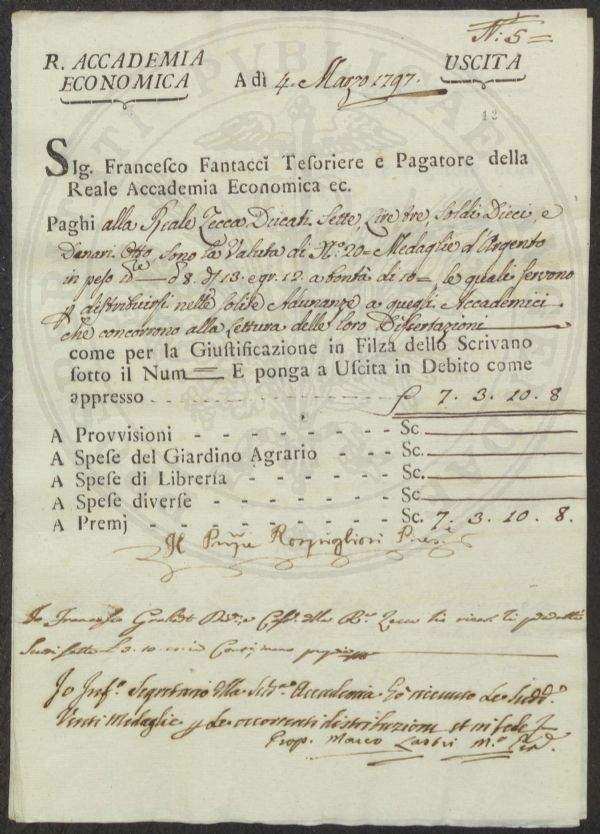 N: 5 =
R. ACCADEMIA ECONOMICA
A dì 4. Marzo 1797.
USCITA
12
SIg. Francesco Fantacci Tesoriere e Pagatore della
Reale Accademia Economica ec.
Paghi alla Reale Zecca Ducati Sette, Lire tre, Soldi Dieci, e
Danari Otto, sono la Valuta di N.º 20= Medaglie d'Argento
in peso 8. 13. e gr. 12. a bontà di 10=, le quali servono
p distribuirsi nelle solite Adunanze a quegli Accademici
che concorrono alla lettura delle loro Dissertazioni
come per la Giustificazione in Filza dello Scrivano
sotto il Num= E ponga a Uscita in Debito come
appresso - - - 7. 3. 10. 8
A Provvisioni - - - - - - Sc.
A Spese del Giardino Agrario - - - - Sc.
A Spese di Libreria - - - - - - Sc.
A Spese diverse - - - - - - Sc.
A Premj - - - - - - - Sc. 7. 3. 10. 8.
Il Rospigliosi
Io Francesco della Zecca
Io Inf.º Segretario della Accademia ho ricevuto le Sudd.e
Venti Medaglie p le occorrenti distribuzioni et in fede
Prop. Marco Lastri